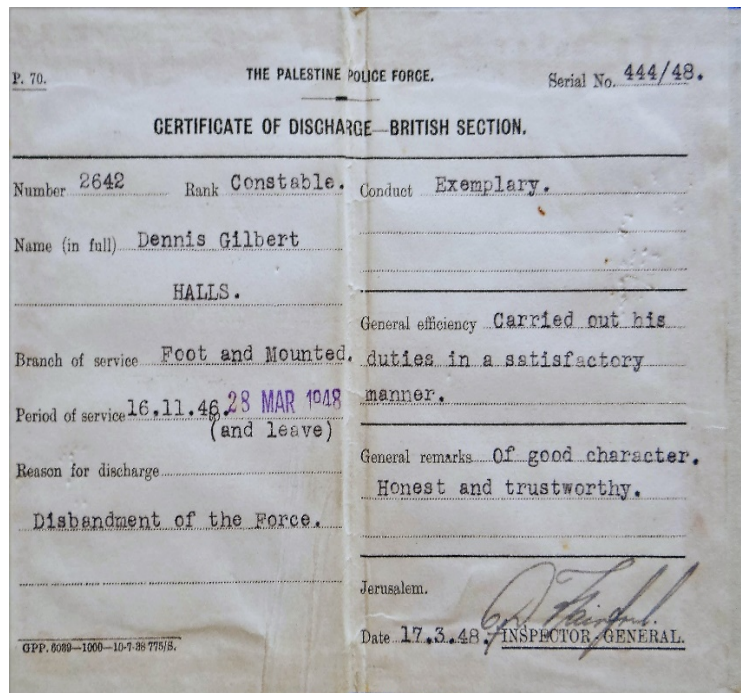 P. 70.
THE PALESTINE POLICE FORCE.
Serial No. 444/48.
CERTIFICATE OF DISCHARGE—BRITISH SECTION.
Number 2642 Rank Constable.
Name (in full) Dennis Gilbert
HALLS.
Branch of service Foot and Mounted.
Period of service 16.11.46. 28 MAR 1948
(and leave)
Reason for discharge
Disbandment of the Force.
GPP. 6089—1000—10-7-38 775/S.
Conduct Exemplary.
General efficiency Carried out his
duties in a satisfactory
manner.
General remarks Of good character.
Honest and trustworthy.
Jerusalem.
Date 17.3.48. INSPECTOR-GENERAL.